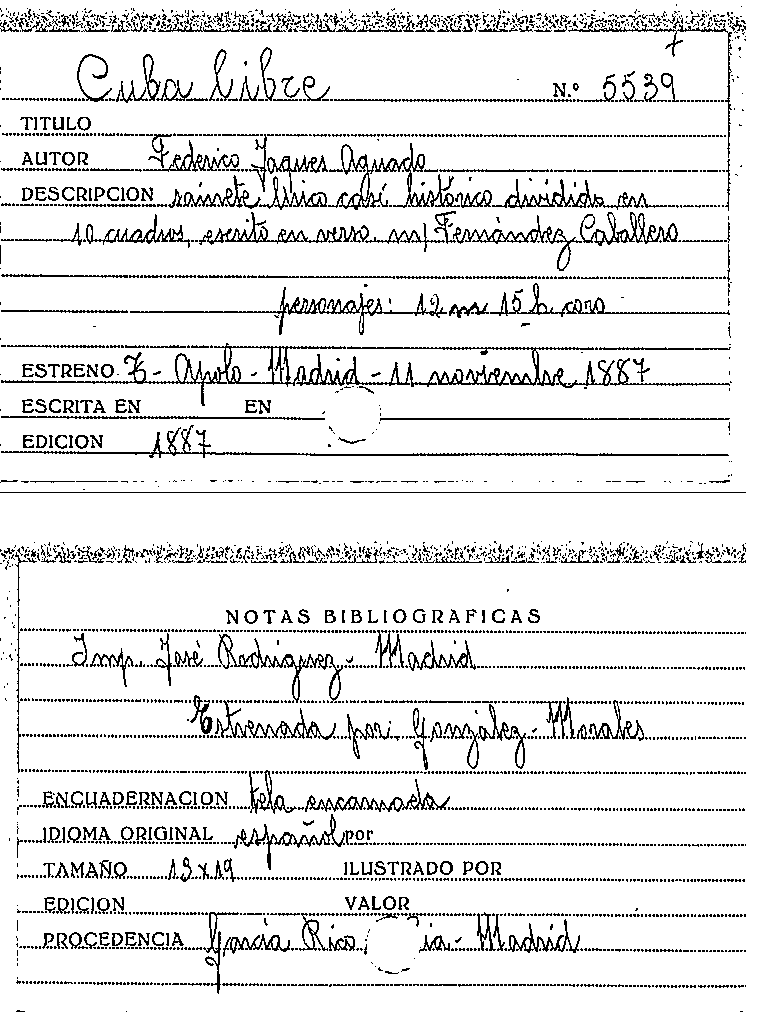 +
Cuba libre N.º 5539
TITULO
AUTOR Federico Jaques Aguado
DESCRIPCION sainete lírico casi histórico dividido en
10 cuadros, escrito en verso. m/ Fernández Caballero
personajes: 12 m 15 h coro
ESTRENO T- Apolo - Madrid - 11 noviembre 1887
ESCRITA EN EN
EDICION 1887
NOTAS BIBLIOGRAFICAS
Imp. José Rodriguez - Madrid
Estrenada por: González - Morales
ENCUADERNACION tela encarnada
IDIOMA ORIGINAL español por
TAMAÑO 13 x 19 ILUSTRADO POR
EDICION VALOR
PROCEDENCIA García Rico ia - Madrid